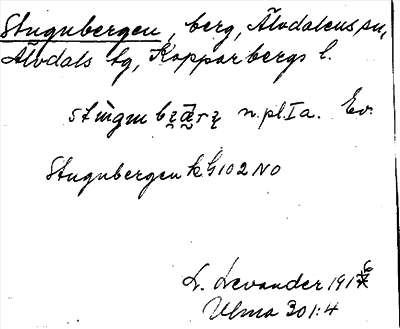 Stugubergen, berg, Älvdalens sn,
Älvdals tg, Kopparbergs l.
n.pl. Ia. Ev.
Stugubergen k G102 NO
L. Levander 191
Ulma 301:4